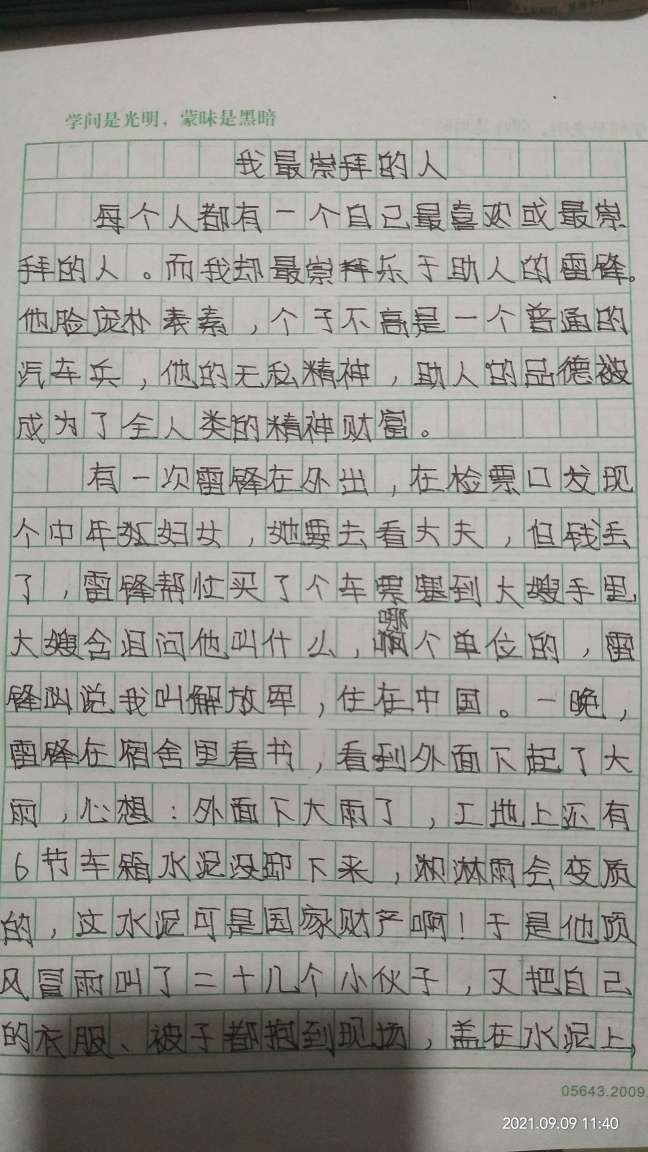 学问是光明，蒙昧是黑暗
我最崇拜的人
每个人都有一个自己最喜欢或最崇
拜的人。而我却最崇拜乐于助人的雷锋。
他脸庞朴素，个子不高是一个普通的
汽车兵，他的无私精神，助人的品德被
成为了全人类的精神财富。
有一次雷锋在外出，在检票口发现
个中年妇女，她要去看大夫，但钱丢
了，雷锋帮忙买了个车票塞到大嫂手里，
大嫂含泪问他叫什么，哪个单位的，雷
锋叫说我叫解放军，住在中国。一晚，
雷锋在宿舍里看书，看到外面下起了大
雨，心想：外面下大雨了，工地上还有
6节车箱水泥没卸下来，淋雨会变质
的，这水泥可是国家财产啊！于是他顶
风冒雨叫了二十几个小伙子，又把自己
的衣服、被子都抱到现场，盖在水泥上，
05643.2009.
2021.09.09 11:40